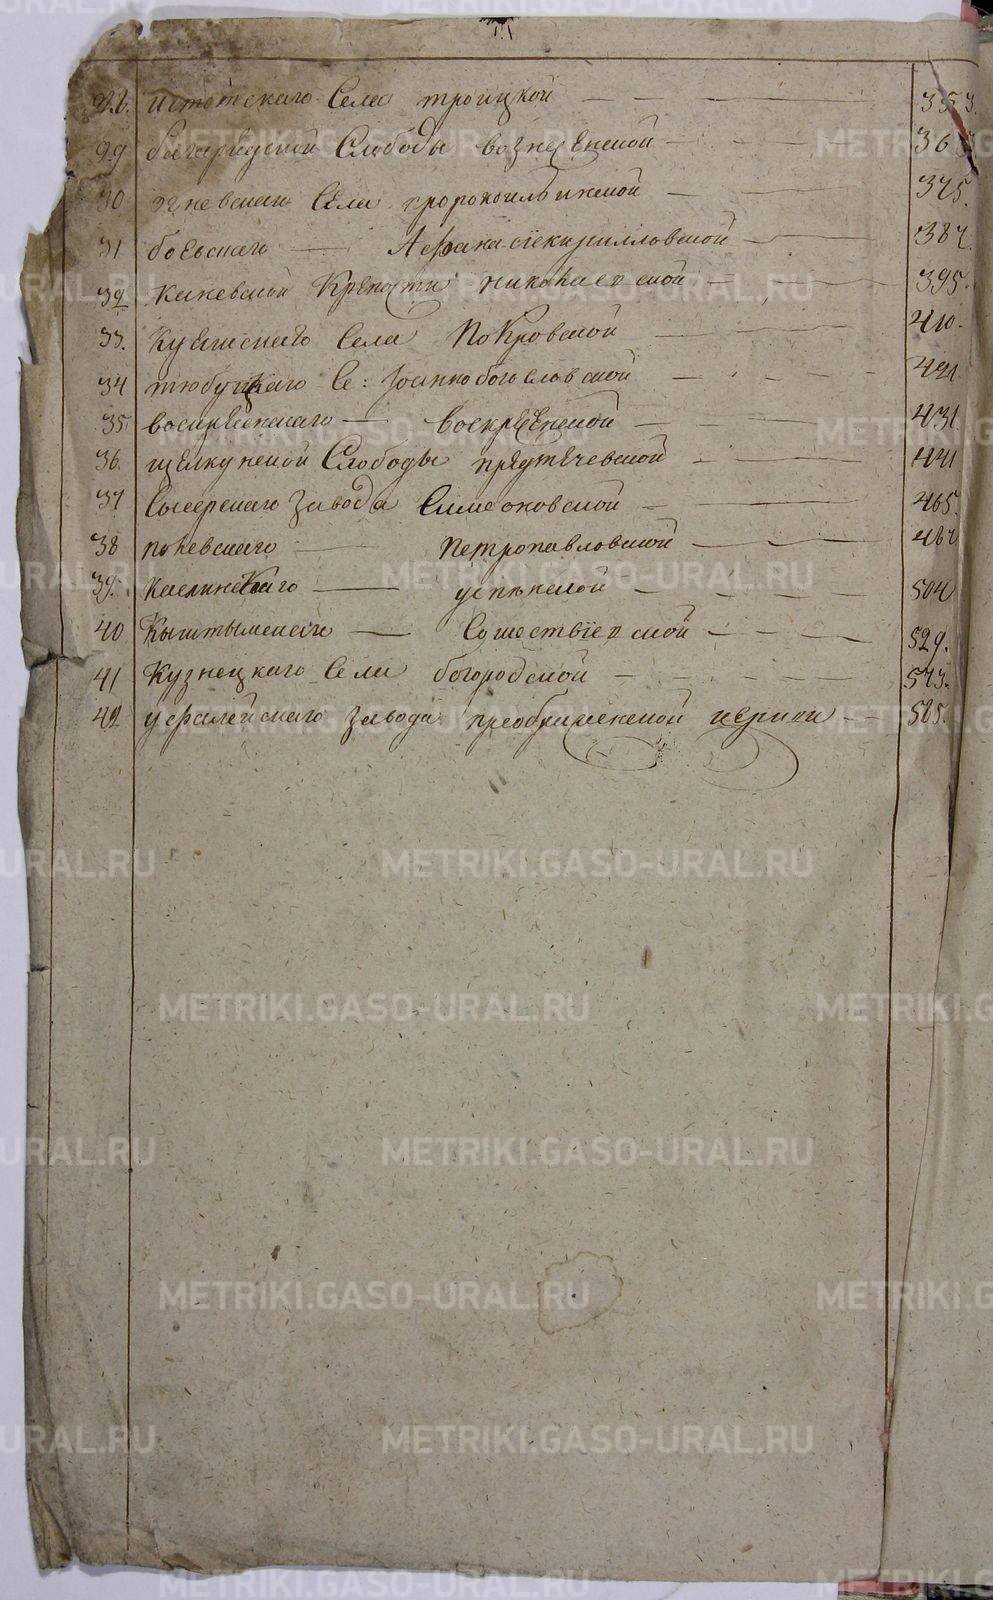 28. Истотскаго Села троицкой — 353.
29 багарядской Слободы вознесенской — 36
30 огневскаго Села пророкоильинской — 375.
31 боевскаго — Афанасиекирилловской — 387.
32 каневской Крепости николаевской — 395.
33. куяшскаго Села Покровской — 410.
34 тюбуцкаго Се: Iоаннобогословской — 421
35. воскресенскаго — воскресенской — 431.
36. щелкунской Слободы предтечевской — 441
37 Сысерскаго Завода Симеоновской — 465.
38 полевскаго — петропавловской — 487
39. Каслинскаго — успенской — 504
40 Кыштымской — Сошествiевской — 529.
41 Кузнецкаго Села богородской — 573.
42 уфалейскаго завода преображенской церкви — 585.
METRIKI.GASO-URAL.RU